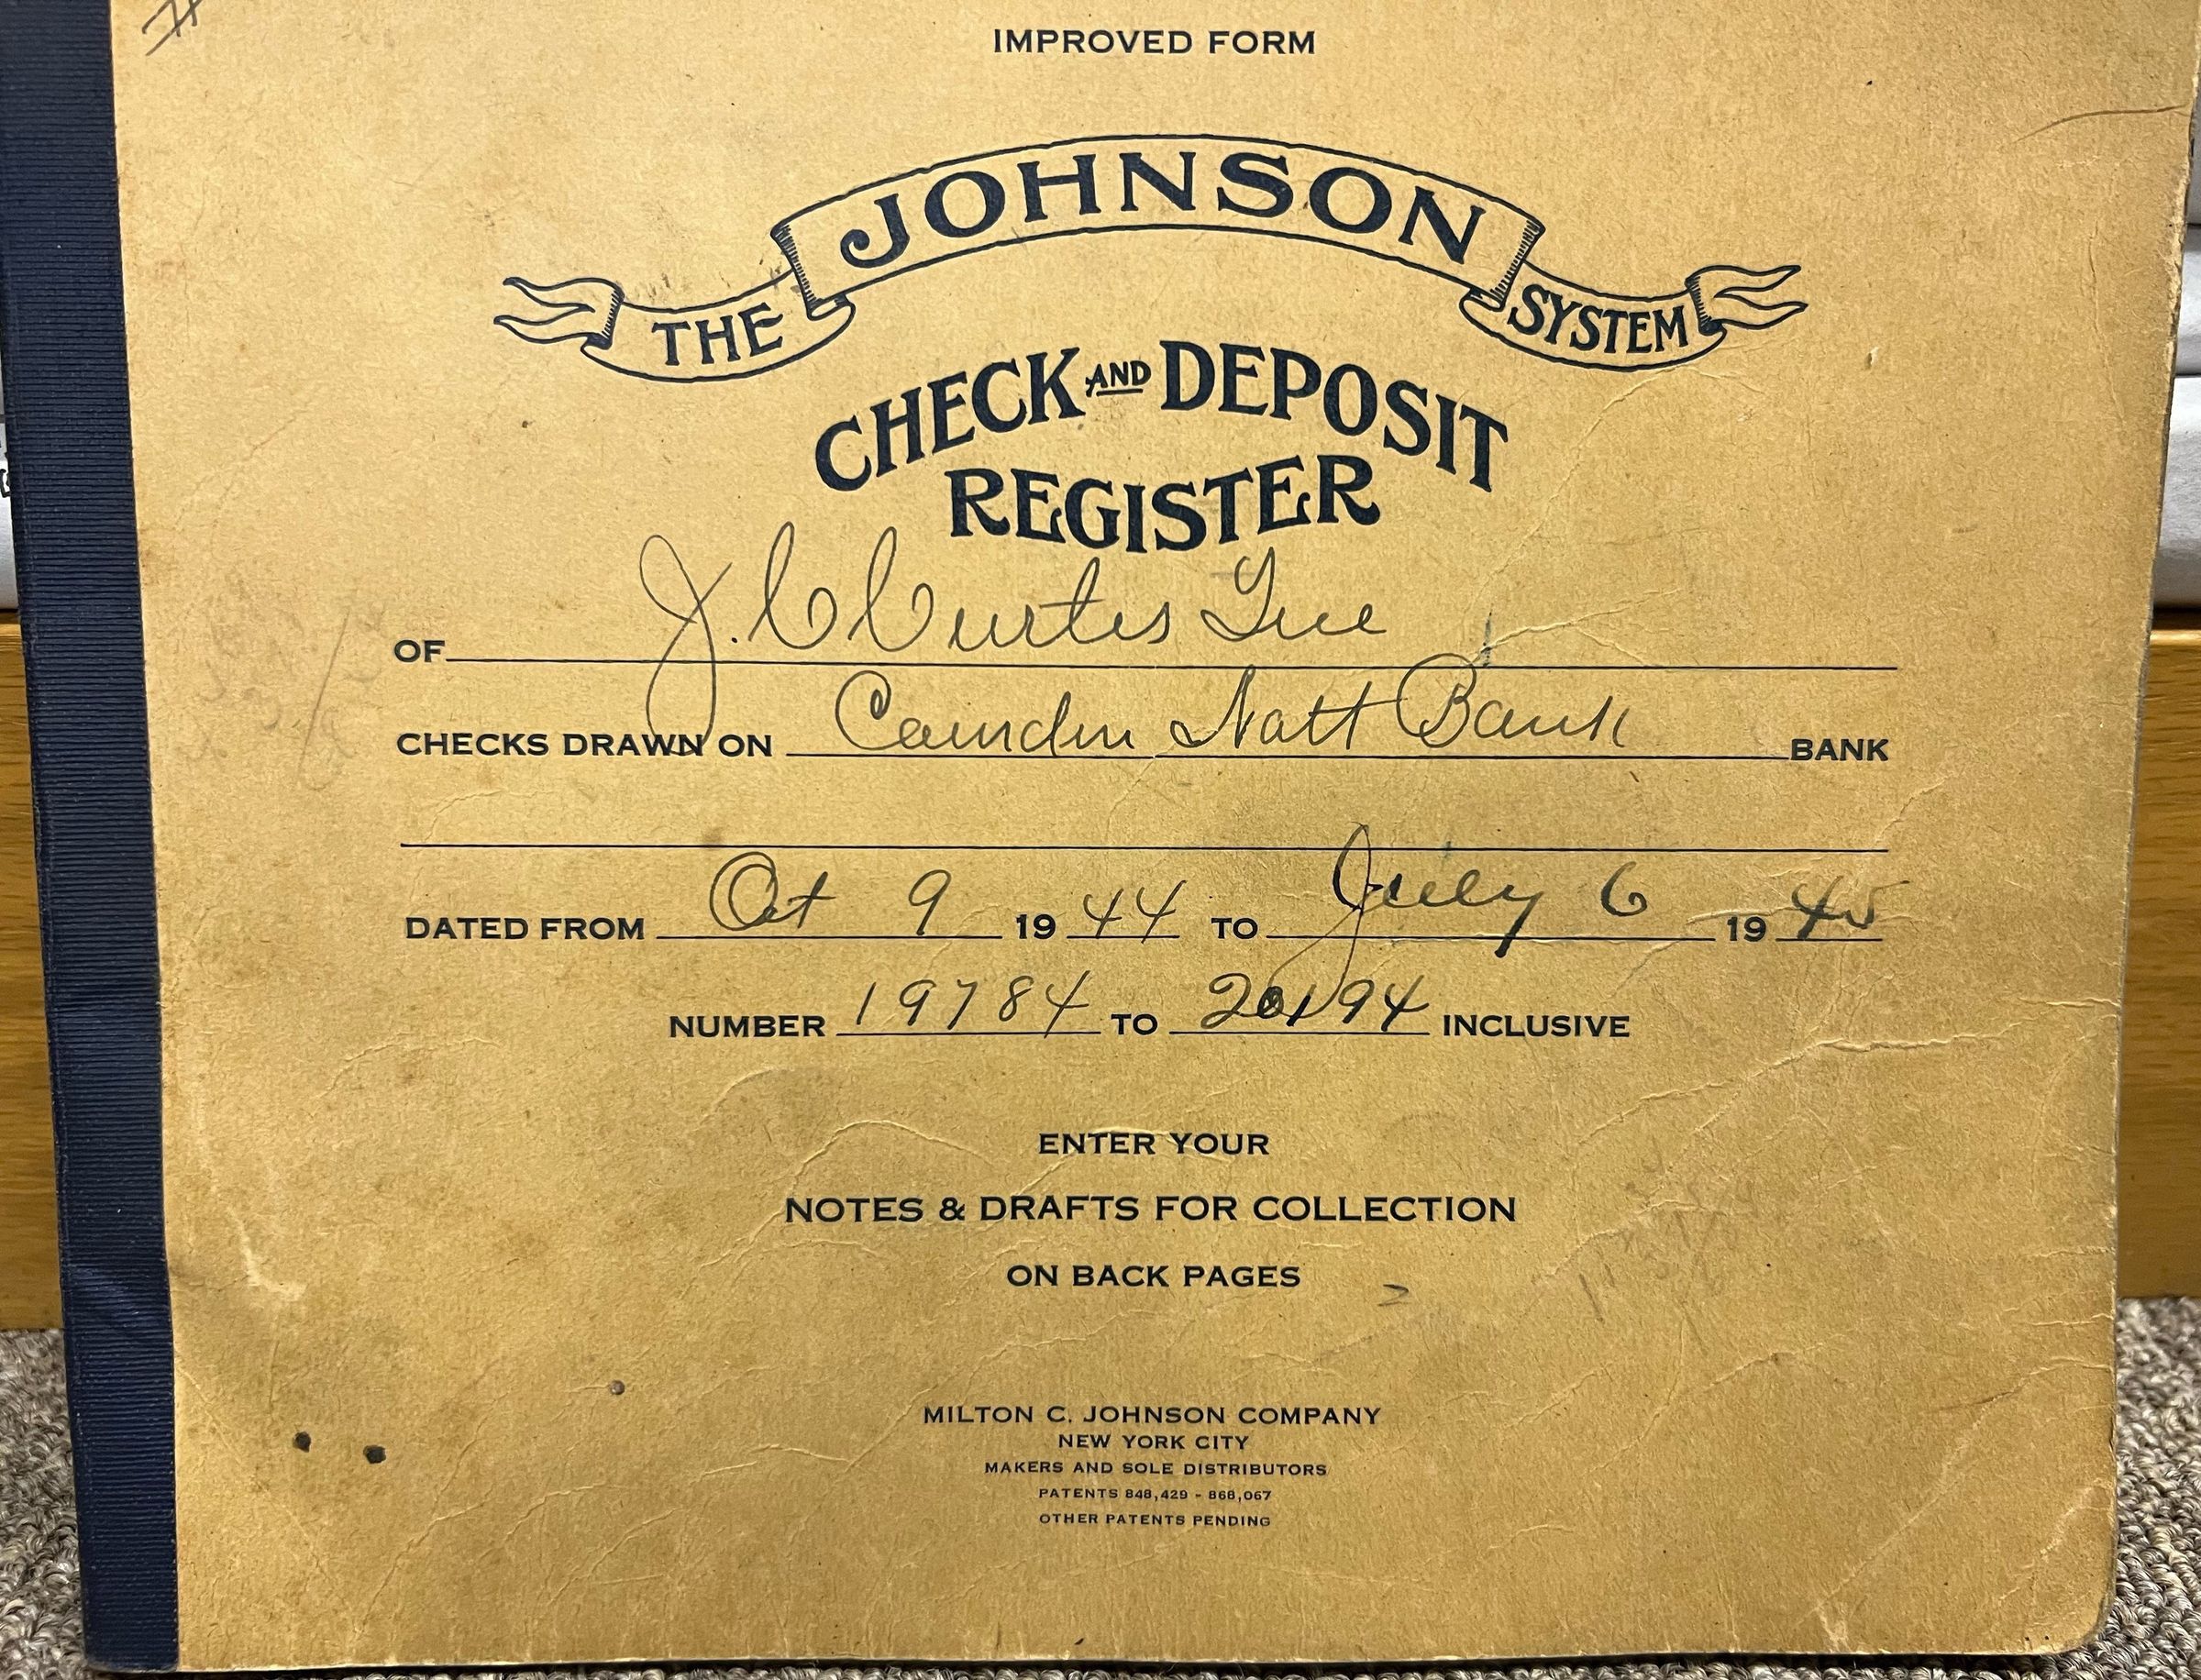 #
IMPROVED FORM
THE JOHNSON SYSTEM
CHECK AND DEPOSIT
REGISTER
OF J. C Curtis Inc
CHECKS DRAWN ON Camden Natl Bank BANK
DATED FROM Oct 9 19 44 TO July 6 19 45
NUMBER 19784 TO 20194 INCLUSIVE
ENTER YOUR
NOTES & DRAFTS FOR COLLECTION
ON BACK PAGES
MILTON C. JOHNSON COMPANY
NEW YORK CITY
MAKERS AND SOLE DISTRIBUTORS
PATENTS 848,429 - 868,067
OTHER PATENTS PENDING